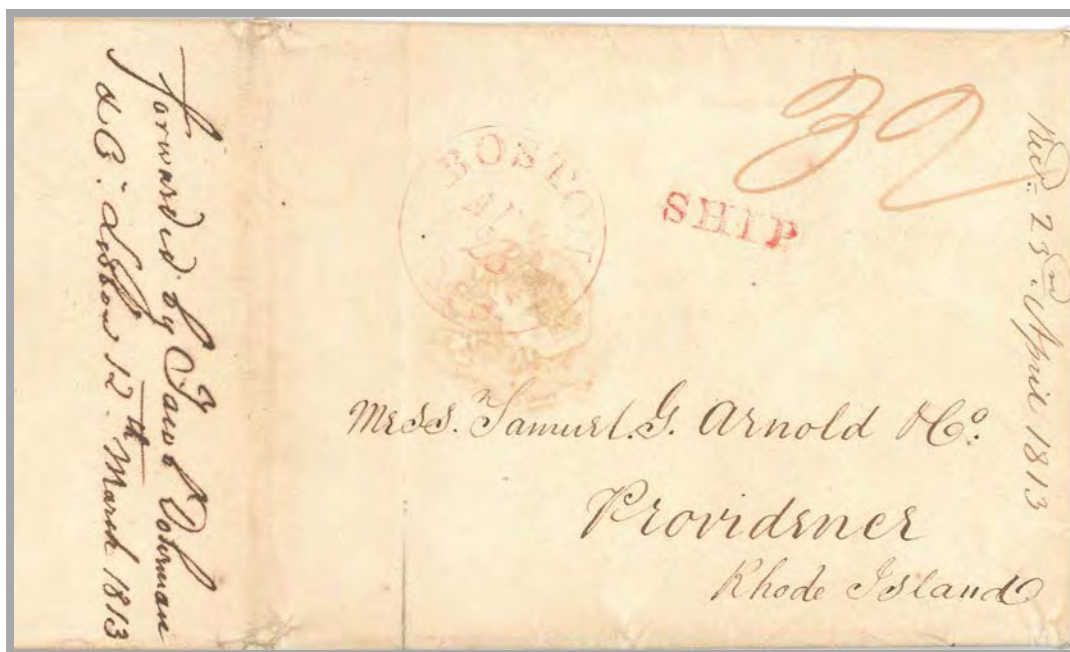 forwarded by Jacob Dohrman
& Co. Lisbon 12th March 1813
BOSTON
AP
SHIP
32
Recd. 23rd April 1813
Mess. Samuel. G. Arnold & Co:
Providence
Rhode Island